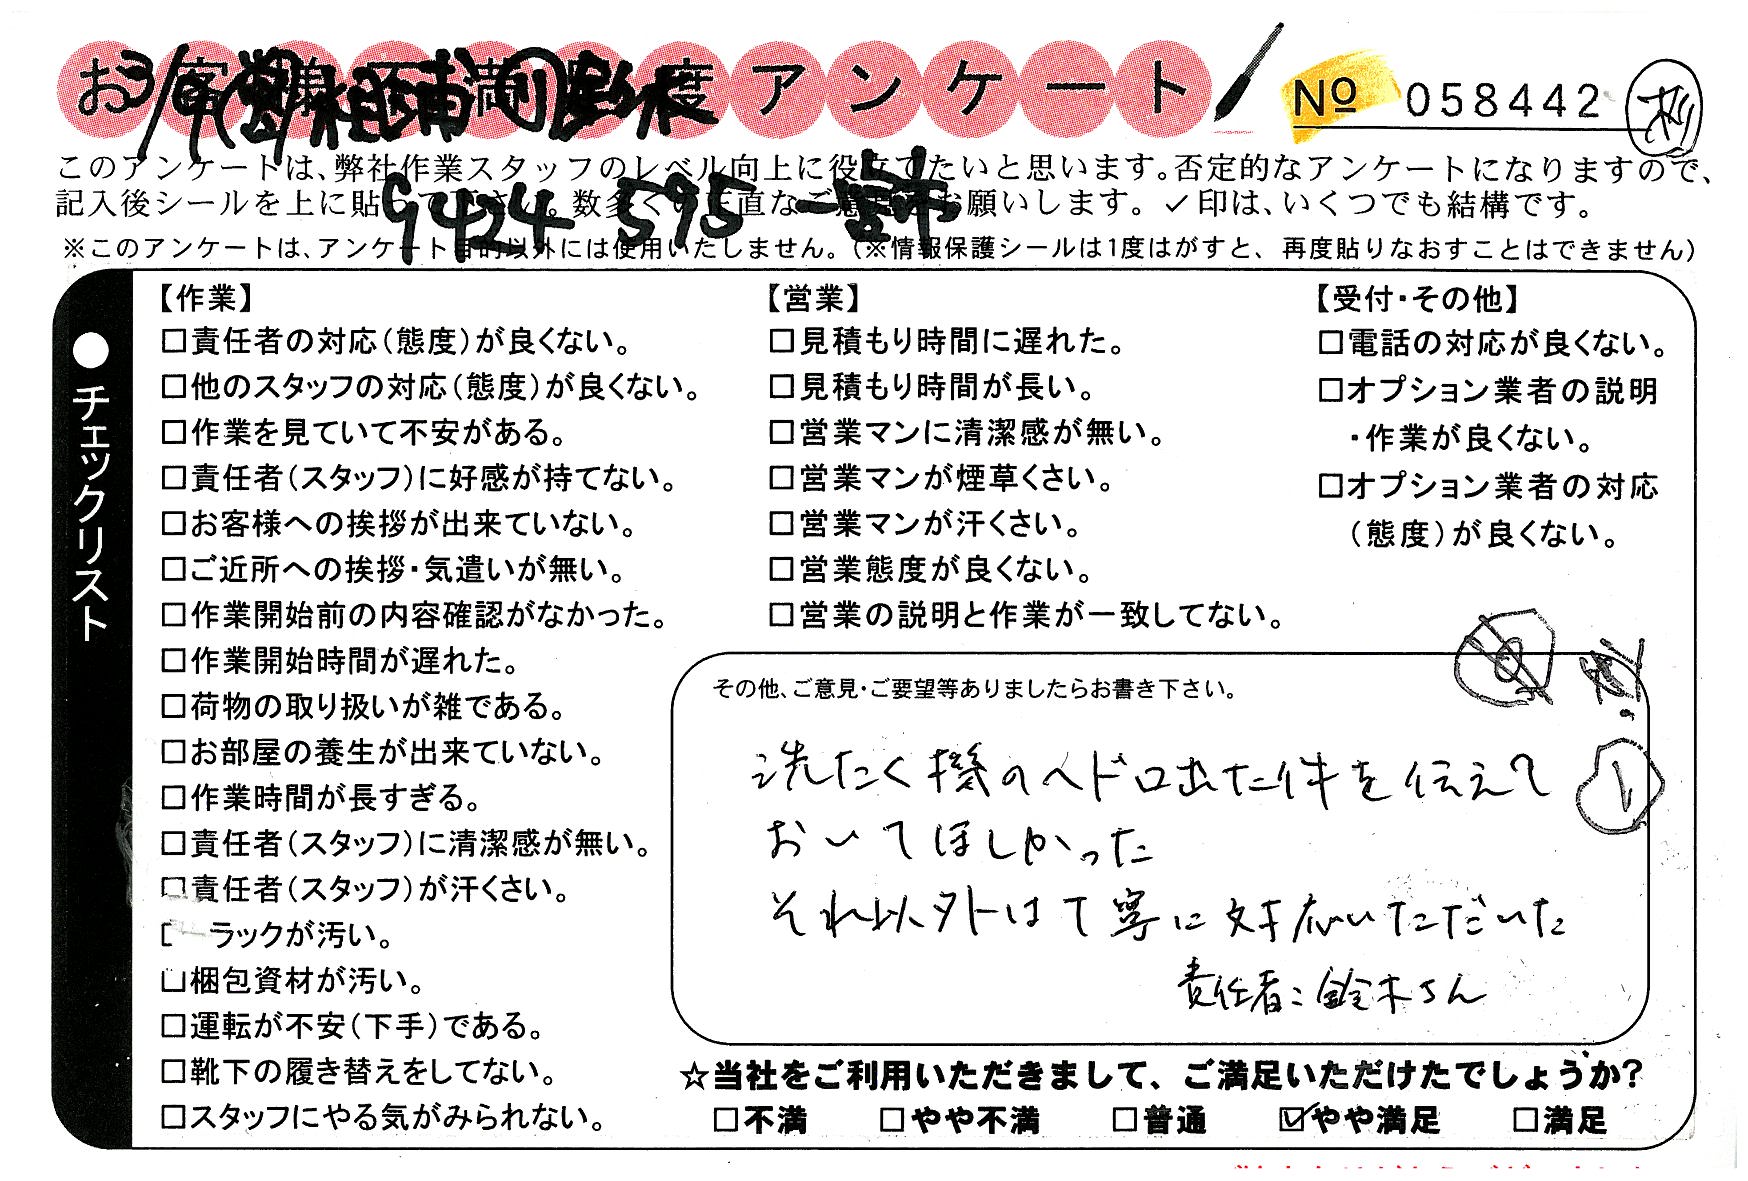 お客様不満度アンケート
№ 058442
このアンケートは、弊社作業スタッフのレベル向上に役立てたいと思います。否定的なアンケートになりますので、
記入後シールを上に貼って下さい。数多くの正直なご意見をお願いします。✓印は、いくつでも結構です。
9424 595
※このアンケートは、アンケート目的以外には使用いたしません。(※情報保護シールは1度はがすと、再度貼りなおすことはできません)
●チェックリスト
【作業】
□責任者の対応(態度)が良くない。
□他のスタッフの対応(態度)が良くない。
□作業を見ていて不安がある。
□責任者(スタッフ)に好感が持てない。
□お客様への挨拶が出来ていない。
□ご近所への挨拶・気遣いが無い。
□作業開始前の内容確認がなかった。
□作業開始時間が遅れた。
□荷物の取り扱いが雑である。
□お部屋の養生が出来ていない。
□作業時間が長すぎる。
□責任者(スタッフ)に清潔感が無い。
□責任者(スタッフ)が汗くさい。
ラックが汚い。
□梱包資材が汚い。
□運転が不安(下手)である。
□靴下の履き替えをしてない。
□スタッフにやる気がみられない。
【営業】
□見積もり時間に遅れた。
□見積もり時間が長い。
□営業マンに清潔感が無い。
□営業マンが煙草くさい。
□営業マンが汗くさい。
□営業態度が良くない。
□営業の説明と作業が一致してない。
【受付・その他】
□電話の対応が良くない。
□オプション業者の説明
・作業が良くない。
□オプション業者の対応
(態度)が良くない。
その他、ご意見・ご要望等ありましたらお書き下さい。
洗たく機のヘドロ出た件を伝えて
おいてほしかった
それ以外は丁寧に対応いただいた
責任者:鈴木さん
☆当社をご利用いただきまして、ご満足いただけたでしょうか?
□不満 □やや不満 □普通 ☑やや満足 □満足